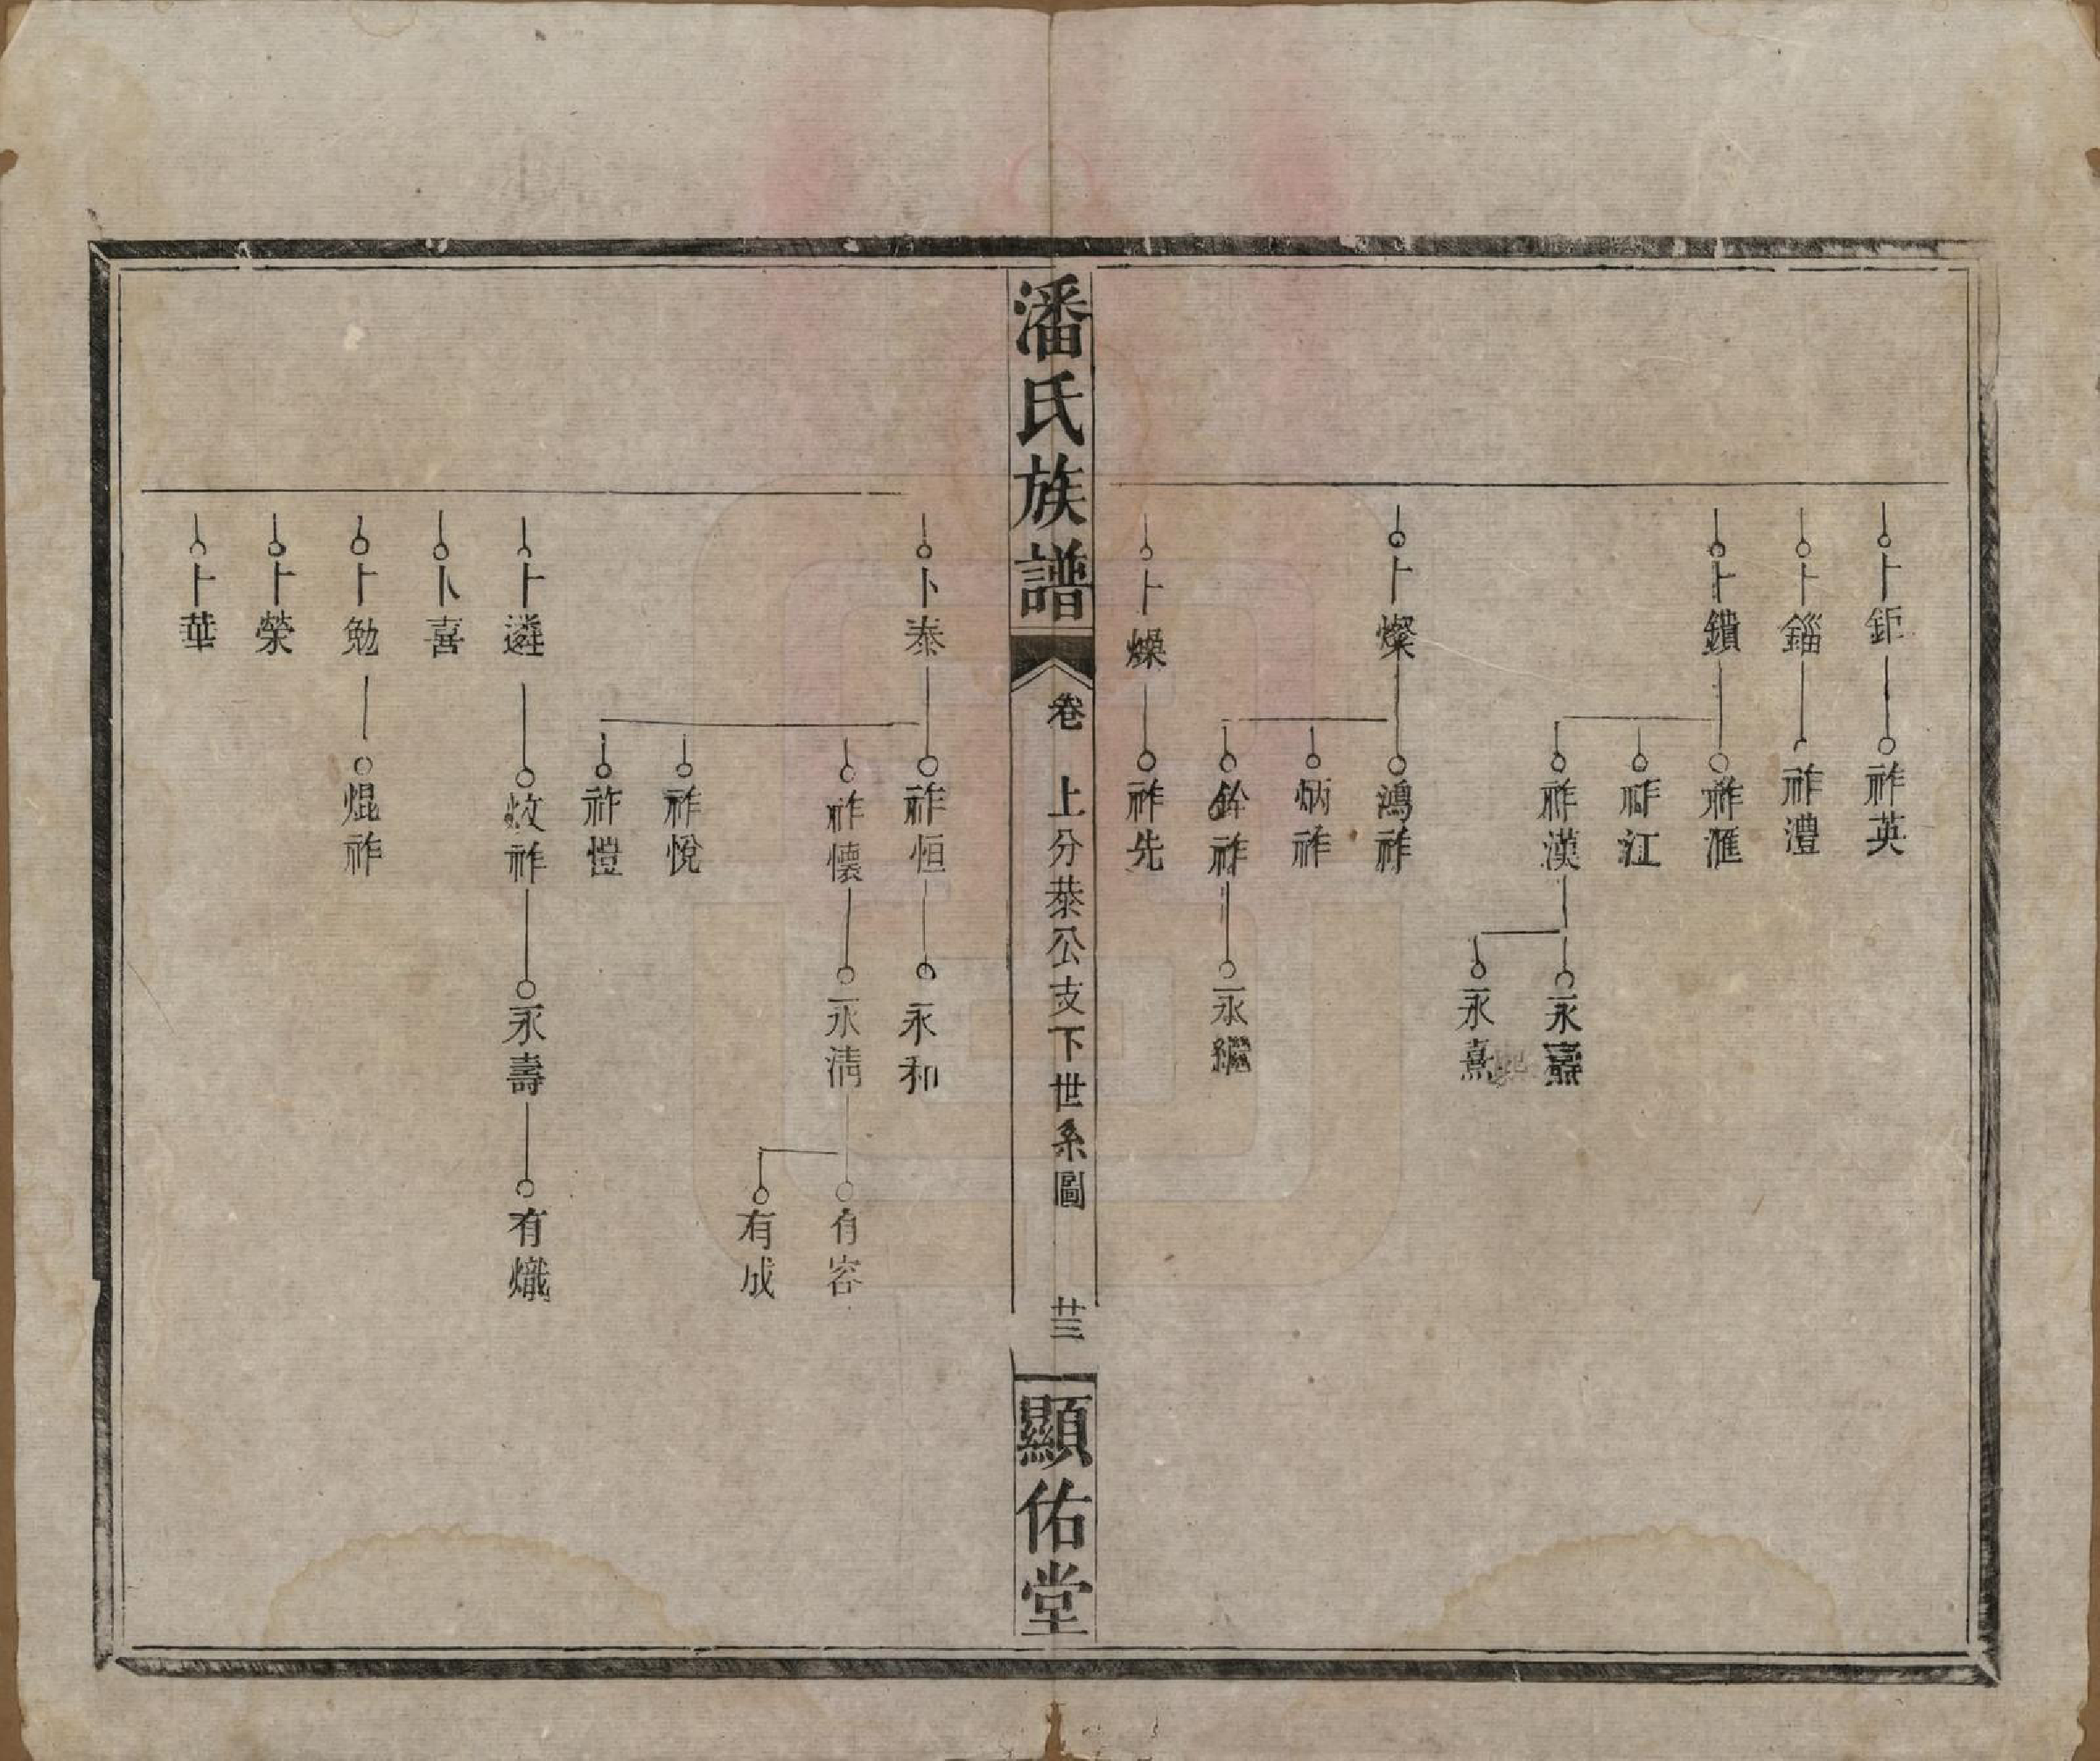 卜鉅
祚英
卜錙
祚澧
卜鐨
祚滙
祚江
祚漢
永燾
永熹
卜燦
鴻祚
炳祚
鈴祚
永繼
卜燥
祚先
潘氏族譜
卷上分恭公支下世系圖
廿三
顯佑堂
卜泰
祚恒
永和
祚懷
永清
有容
有成
祚悅
祚愷
卜遴
炆祚
永壽
有熾
卜喜
卜勉
焜祚
卜榮
卜華